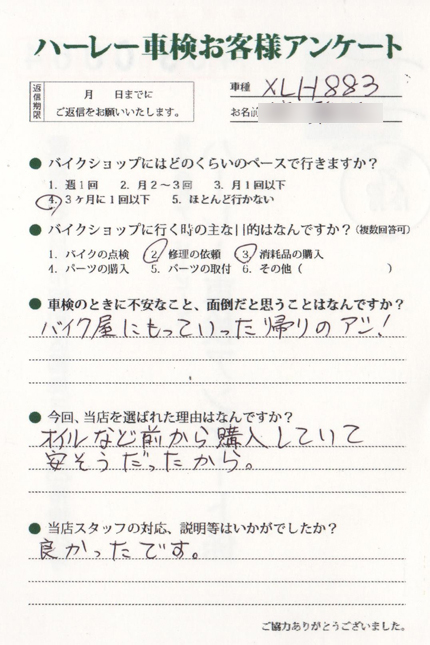 ハーレー車検お客様アンケート
返信期限
月 日までに
ご返信をお願いいたします。
車種 XLH883
お名前
● バイクショップにはどのくらいのペースで行きますか？
1. 週1回 2. 月2～3回 3. 月1回以下
4. 3ヶ月に1回以下 5. ほとんど行かない
● バイクショップに行く時の主な目的はなんですか？（複数回答可）
1. バイクの点検 2. 修理の依頼 3. 消耗品の購入
4. パーツの購入 5. パーツの取付 6. その他（ ）
● 車検のときに不安なこと、面倒だと思うことはなんですか？
バイク屋にもっていった帰りのアシ！
● 今回、当店を選ばれた理由はなんですか？
オイルなど前から購入していて
安そうだったから。
● 当店スタッフの対応、説明等はいかがでしたか？
良かったです。
ご協力ありがとうございました。